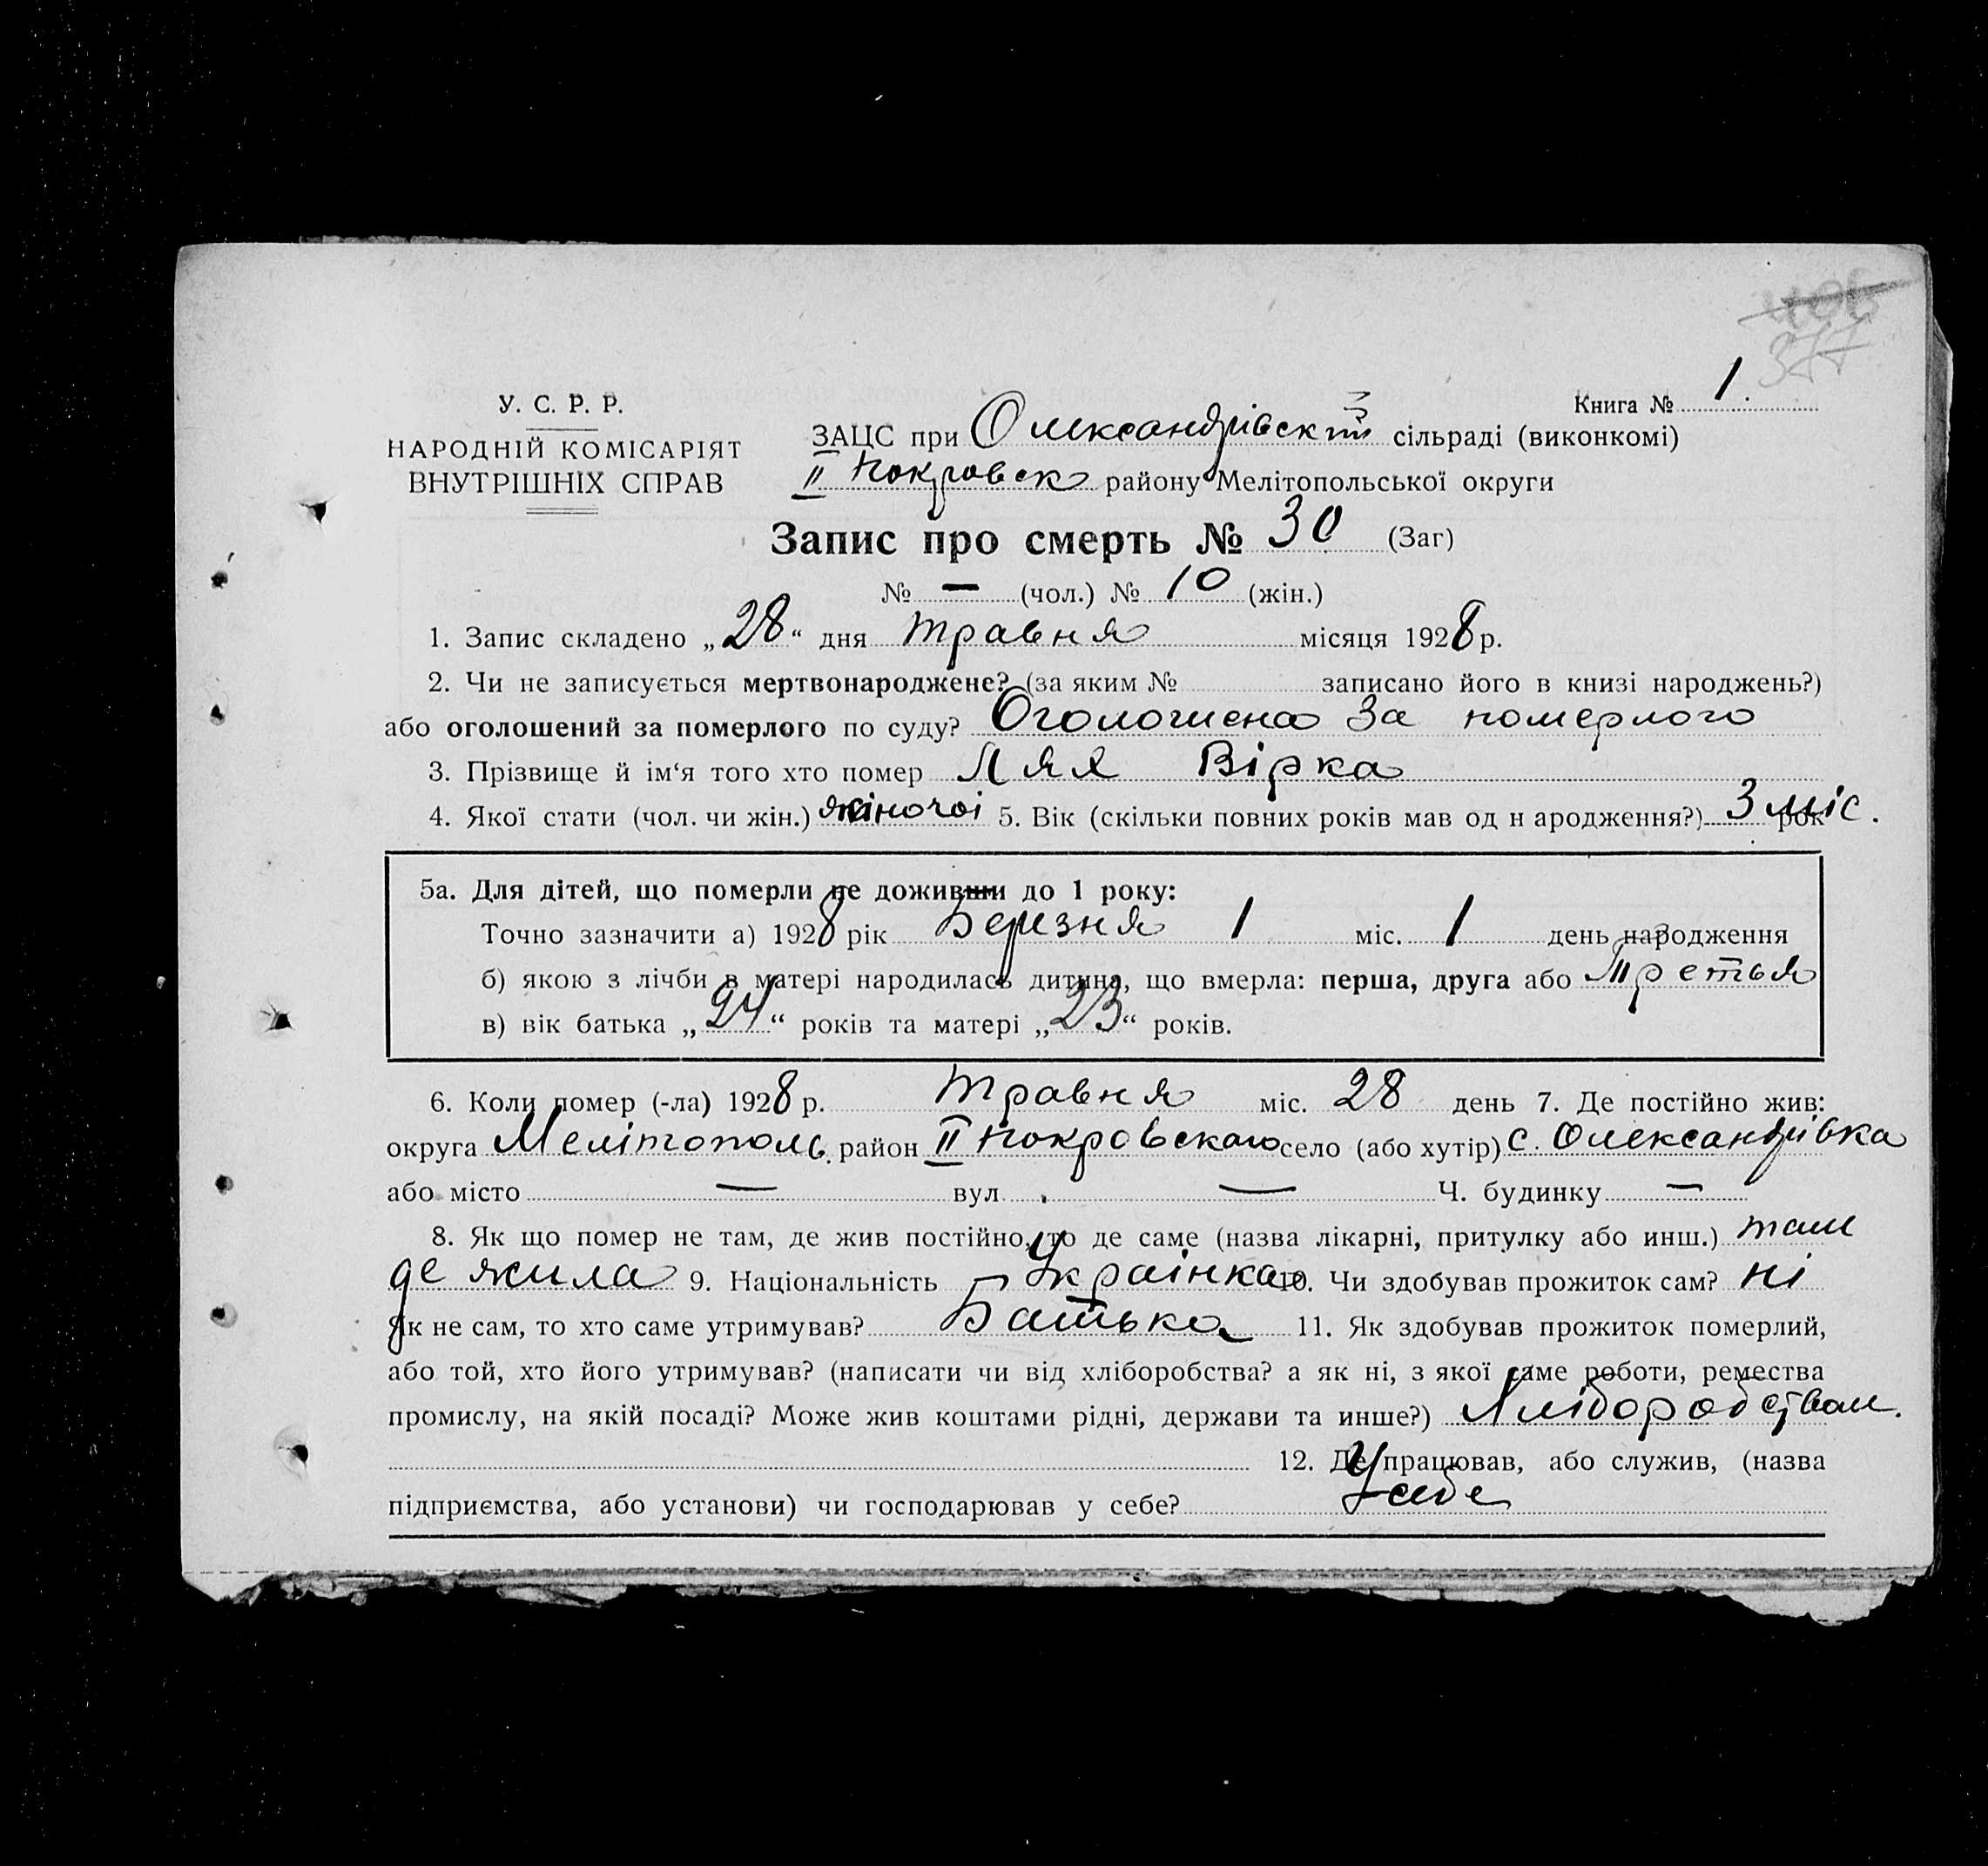 377
Книга № 1.
У. С. Р. Р.
НАРОДНІЙ КОМІСАРІЯТ
ВНУТРІШНІХ СПРАВ
ЗАЦС при Олександрівскій сільраді (виконкомі)
II Покровск району Мелітопольської округи
Запис про смерть № 30 (Заг)
№ — (чол.) № 10 (жін.)
1. Запис складено „28“ дня травня місяця 1928 р.
2. Чи не записується мертвонароджене? (за яким № записано його в книзі народжень?)
або оголошений за померлого по суду? Оголошена За померлого
3. Прізвище й ім‘я того хто помер Лях Вірка
4. Якої стати (чол. чи жін.) жіночоі 5. Вік (скільки повних років мав од н ародження?) 3 міс. рок
5а. Для дітей, що померли не доживши до 1 року:
Точно зазначити а) 1928 рік Березня 1 міс. 1 день народження
б) якою з лічби в матері народилась дитина, що вмерла: перша, друга або Третья
в) вік батька „24“ років та матері „23“ років.
6. Коли помер (-ла) 1928 р. травня міс. 28 день 7. Де постійно жив:
округа Мелітополь. район II Покровского село (або хутір) с. Олександрівка
або місто — вул. — Ч. будинку —
8. Як що помер не там, де жив постійно, то де саме (назва лікарні, притулку або инш.) там
де жила 9. Національність Украінка 10. Чи здобував прожиток сам? ні
Як не сам, то хто саме утримував? Батько 11. Як здобував прожиток померлий,
або той, хто його утримував? (написати чи від хліборобства? а як ні, з якої саме роботи, ремества
промислу, на якій посаді? Може жив коштами рідні, держави та инше?) Хліборобством.
12. Де працював, або служив, (назва
підприємства, або установи) чи господарював у себе? У себе